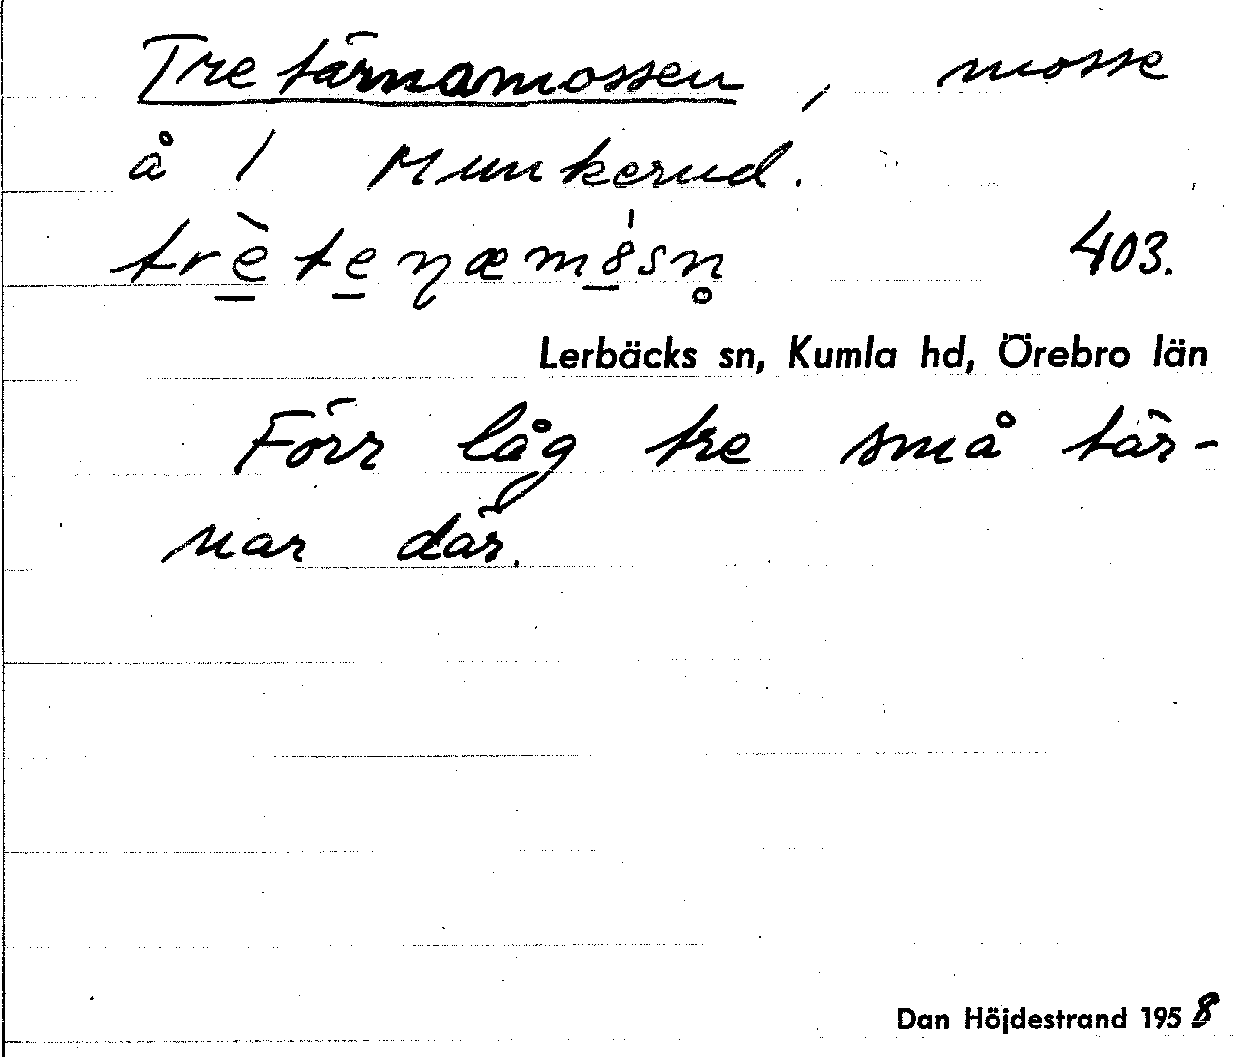 Tretärnamossen, mosse
å 1 Munkerud.
trèteŋæmósn̥ 403.
Lerbäcks sn, Kumla hd, Örebro län
Förr låg tre små tär-
nar där.
Dan Höjdestrand 1958